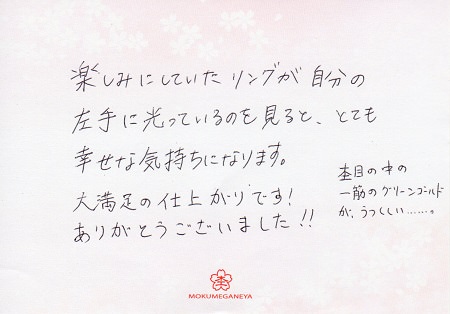 楽しみにしていたリングが自分の
左手に光っているのを見ると、とても
幸せな気持ちになります。
大満足の仕上がりです！
ありがとうございました！！
杢目の中の
一筋のグリーンゴールド
が、うつくしい……。
MOKUMEGANEYA